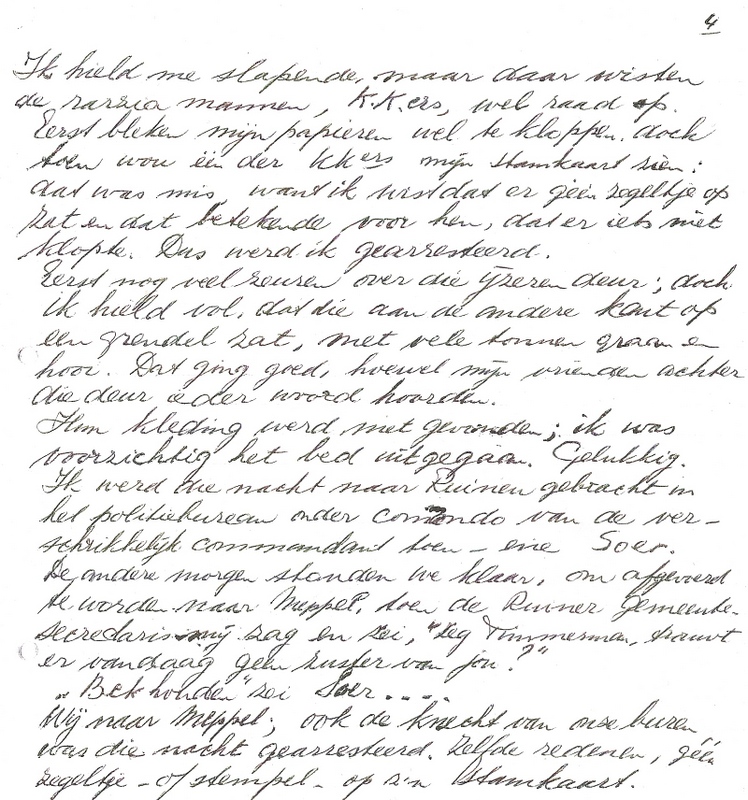 4
Ik hield me slapende, maar daar wisten
de razzia mannen, K.K.ers, wel raad op.
Eerst bleken mijn papieren wel te kloppen. doch
toen wou één der KKers mijn stamkaart zien:
dat was mis, want ik wist dat er géén zegeltje op
zat en dat betekende voor hen, dat er iets niet
klopte. Dus werd ik gearresteerd.
Eerst nog veel zeuren over die ijzeren deur; doch
ik hield vol, dat die aan de andere kant op
een grendel zat, met vele tonnen graan en
hooi. Dat ging goed, hoewel mijn vrienden achter
die deur ieder woord hoorden.
Hun kleding werd niet gevonden; ik was
voorzichtig het bed uitgegaan. Gelukkig.
Ik werd die nacht naar Ruinen gebracht in
het politiebureau onder comando van de ver-
schrikkelijk commandant toen - ene Soer.
De andere morgen stonden we klaar, om afgevoerd
te worden naar Meppel, toen de Ruiner Gemeente-
secredaris mij zag en zei, "Zeg Timmerman, trouwt
er vandaag geen zuster van jou?"
"Bek houden" zei Soer ....
Wij naar Meppel; ook de knecht van onze buren
was die nacht gearresteerd. Zelfde redenen, géén
zegeltje - of stempel - op z'n stamkaart.